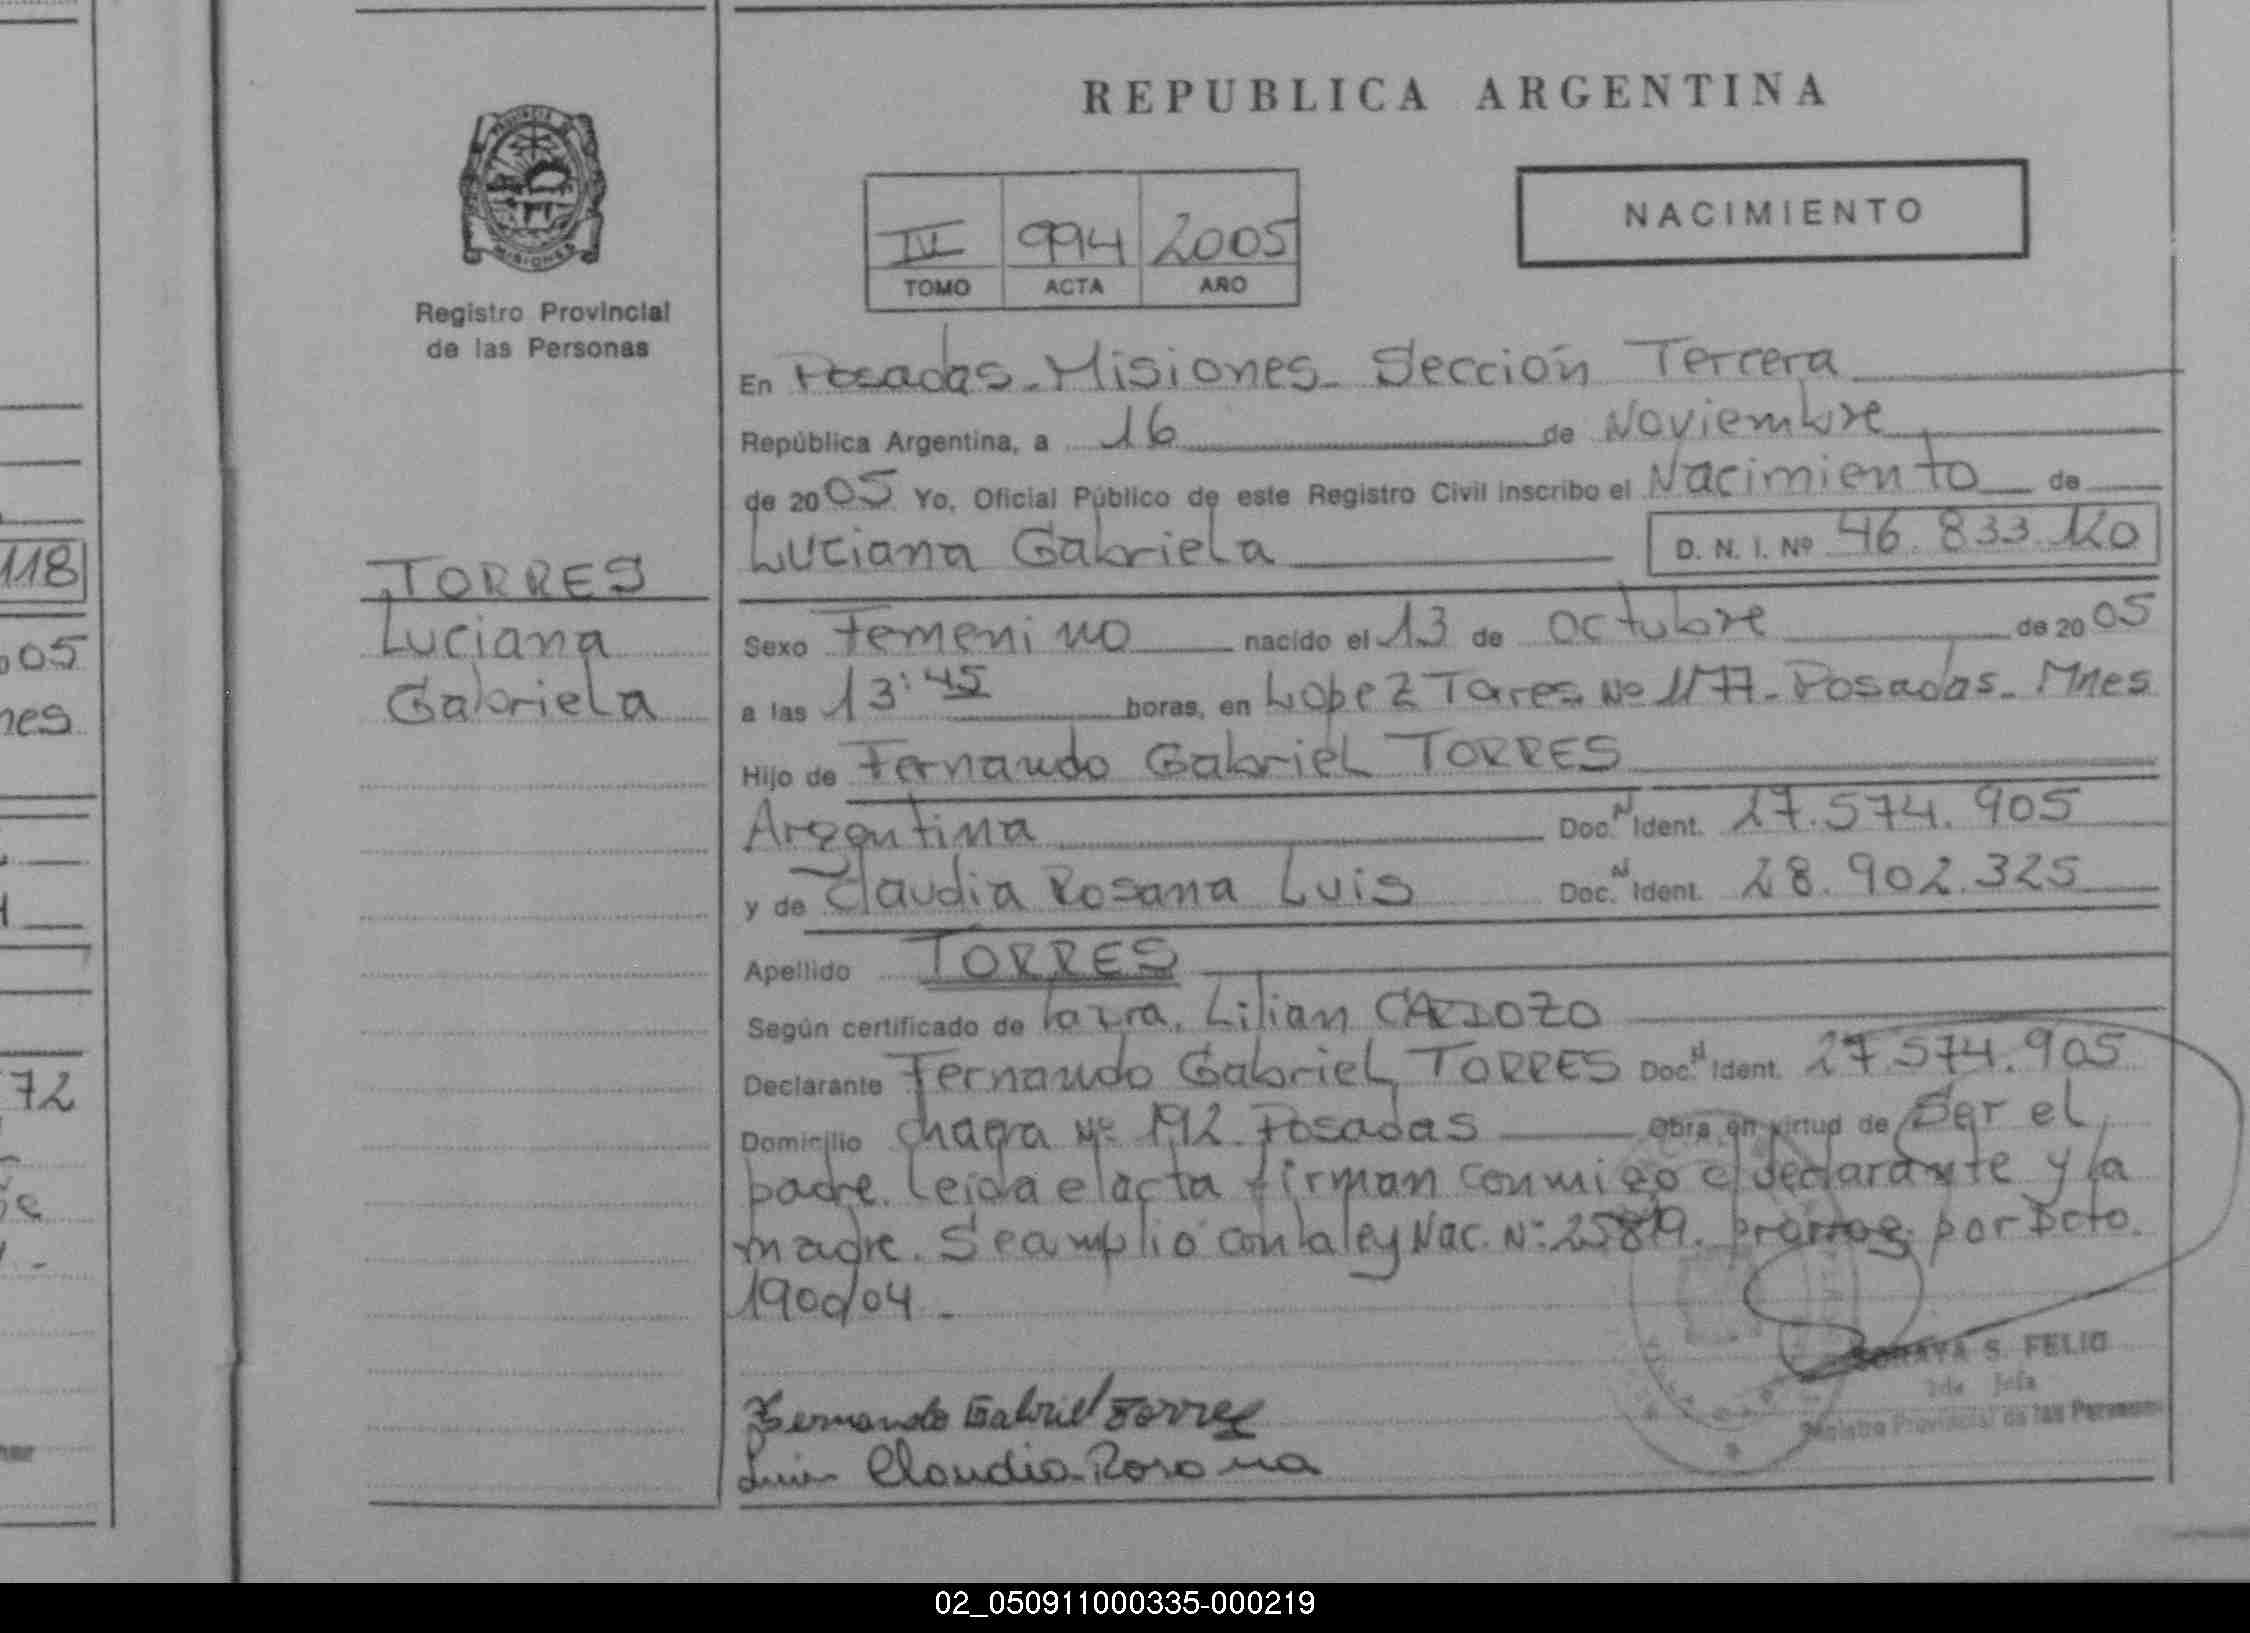 REPUBLICA ARGENTINA
NACIMIENTO
994 2005
TOMO ACTA AÑO
PROVINCIA DE
MISIONES
Registro Provincial
de las Personas
En Posadas - Misiones - Sección Tercera
República Argentina, a 16 de Noviembre
de 2005 Yo, Oficial Público de este Registro Civil inscribo el Nacimiento de
Luciana Gabriela D. N. I. Nº 46.833.120
TORRES
Luciana
Gabriela
Sexo Femenino nacido el 13 de octubre de 2005
a las 13:45 horas, en Lopez Torres Nº 1177 - Posadas - Mnes
Hijo de Fernando Gabriel TORRES
Argentina Doc. N Ident. 27.574.905
y de Claudia Rosana Luis Doc. N Ident. 28.902.325
Apellido TORRES
Según certificado de Lilian CARDOZO
Declarante Fernando Gabriel TORRES Doc. N Ident. 27.574.905
Domicilio chacra Nº 192 Posadas Obra en virtud de Ser el
padre. Leída el acta firman conmigo el declarante y la
madre. Se amplió con la ley Nac. Nº: 25819. prorrog. por Dcto.
1900/04.-
S. FELIO
Jefa
Registro Provincial de las Personas
Fernando Gabriel Torres
Luis Claudia Rosana
118
05
nes
72
02_050911000335-000219